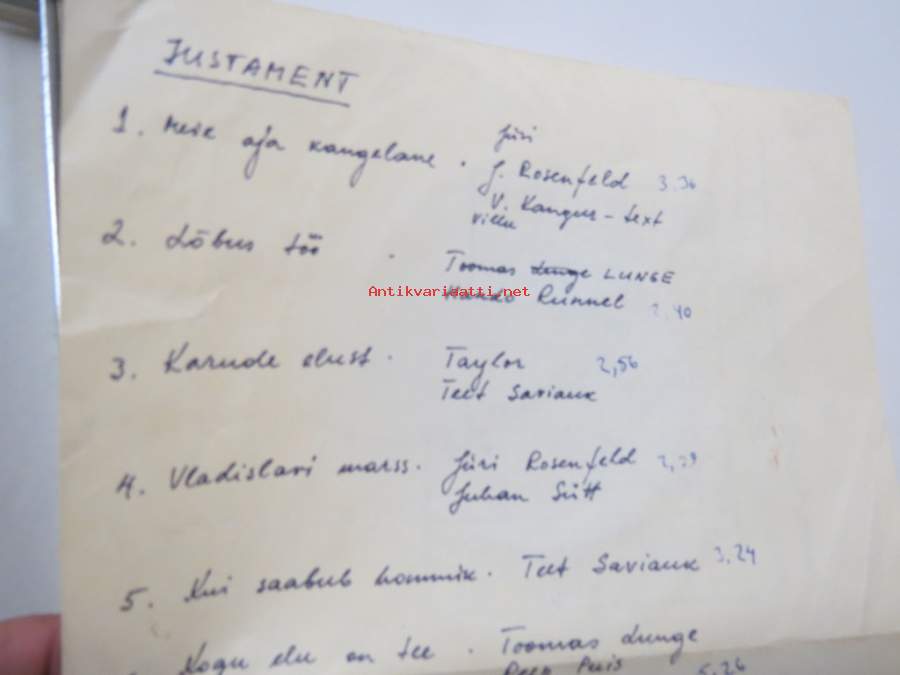 JUSTAMENT
1. Meie aja kangelane . Jüri
J. Rosenfeld 3.36
V. Kangur - text
Villu
2. Lõbus töö . Toomas Lunge LUNGE
Antikvariaatti.net
Hando Runnel 2.40
3. Karude elust . Taylor 2,56
Teet Saviauk
4. Vladislavi marss . Jüri Rosenfeld
Juhan Sütt
5. Kui saabub hommik . Teet Saviauk 3.24
Kogu elu on tee . Toomas Lunge
Puis 5.26